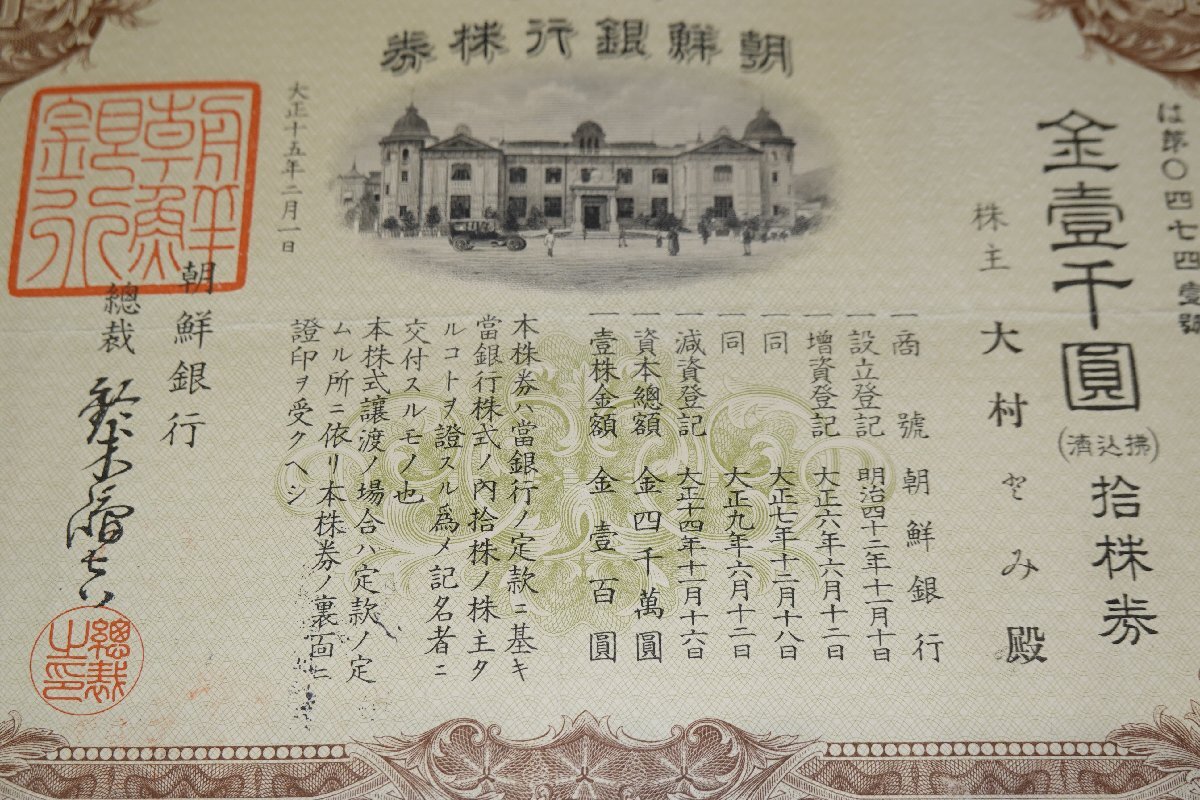 朝鮮銀行株券
は第〇四七四壹號
金壹千圓(拂込濟)拾株券
株主 大村とみ殿
一商號 朝鮮銀行
一設立登記 明治四十二年十一月十日
一增資登記 大正六年六月十二日
一同 大正七年十二月十八日
一同 大正九年六月十二日
一減資登記 大正十四年十一月十六日
一資本總額 金四千萬圓
一壹株金額 金壹百圓
本株券ハ當銀行ノ定款ニ基キ
當銀行株式ノ內拾株ノ株主タ
ルコトヲ證スル爲メ記名者ニ
交付スルモノ也
本株式讓渡ノ場合ハ定款ノ定
ムル所ニ依リ本株券ノ裏面ニ
證印ヲ受クヘシ
大正十五年二月一日
朝鮮銀行
總裁
朝鮮銀行
總裁之印